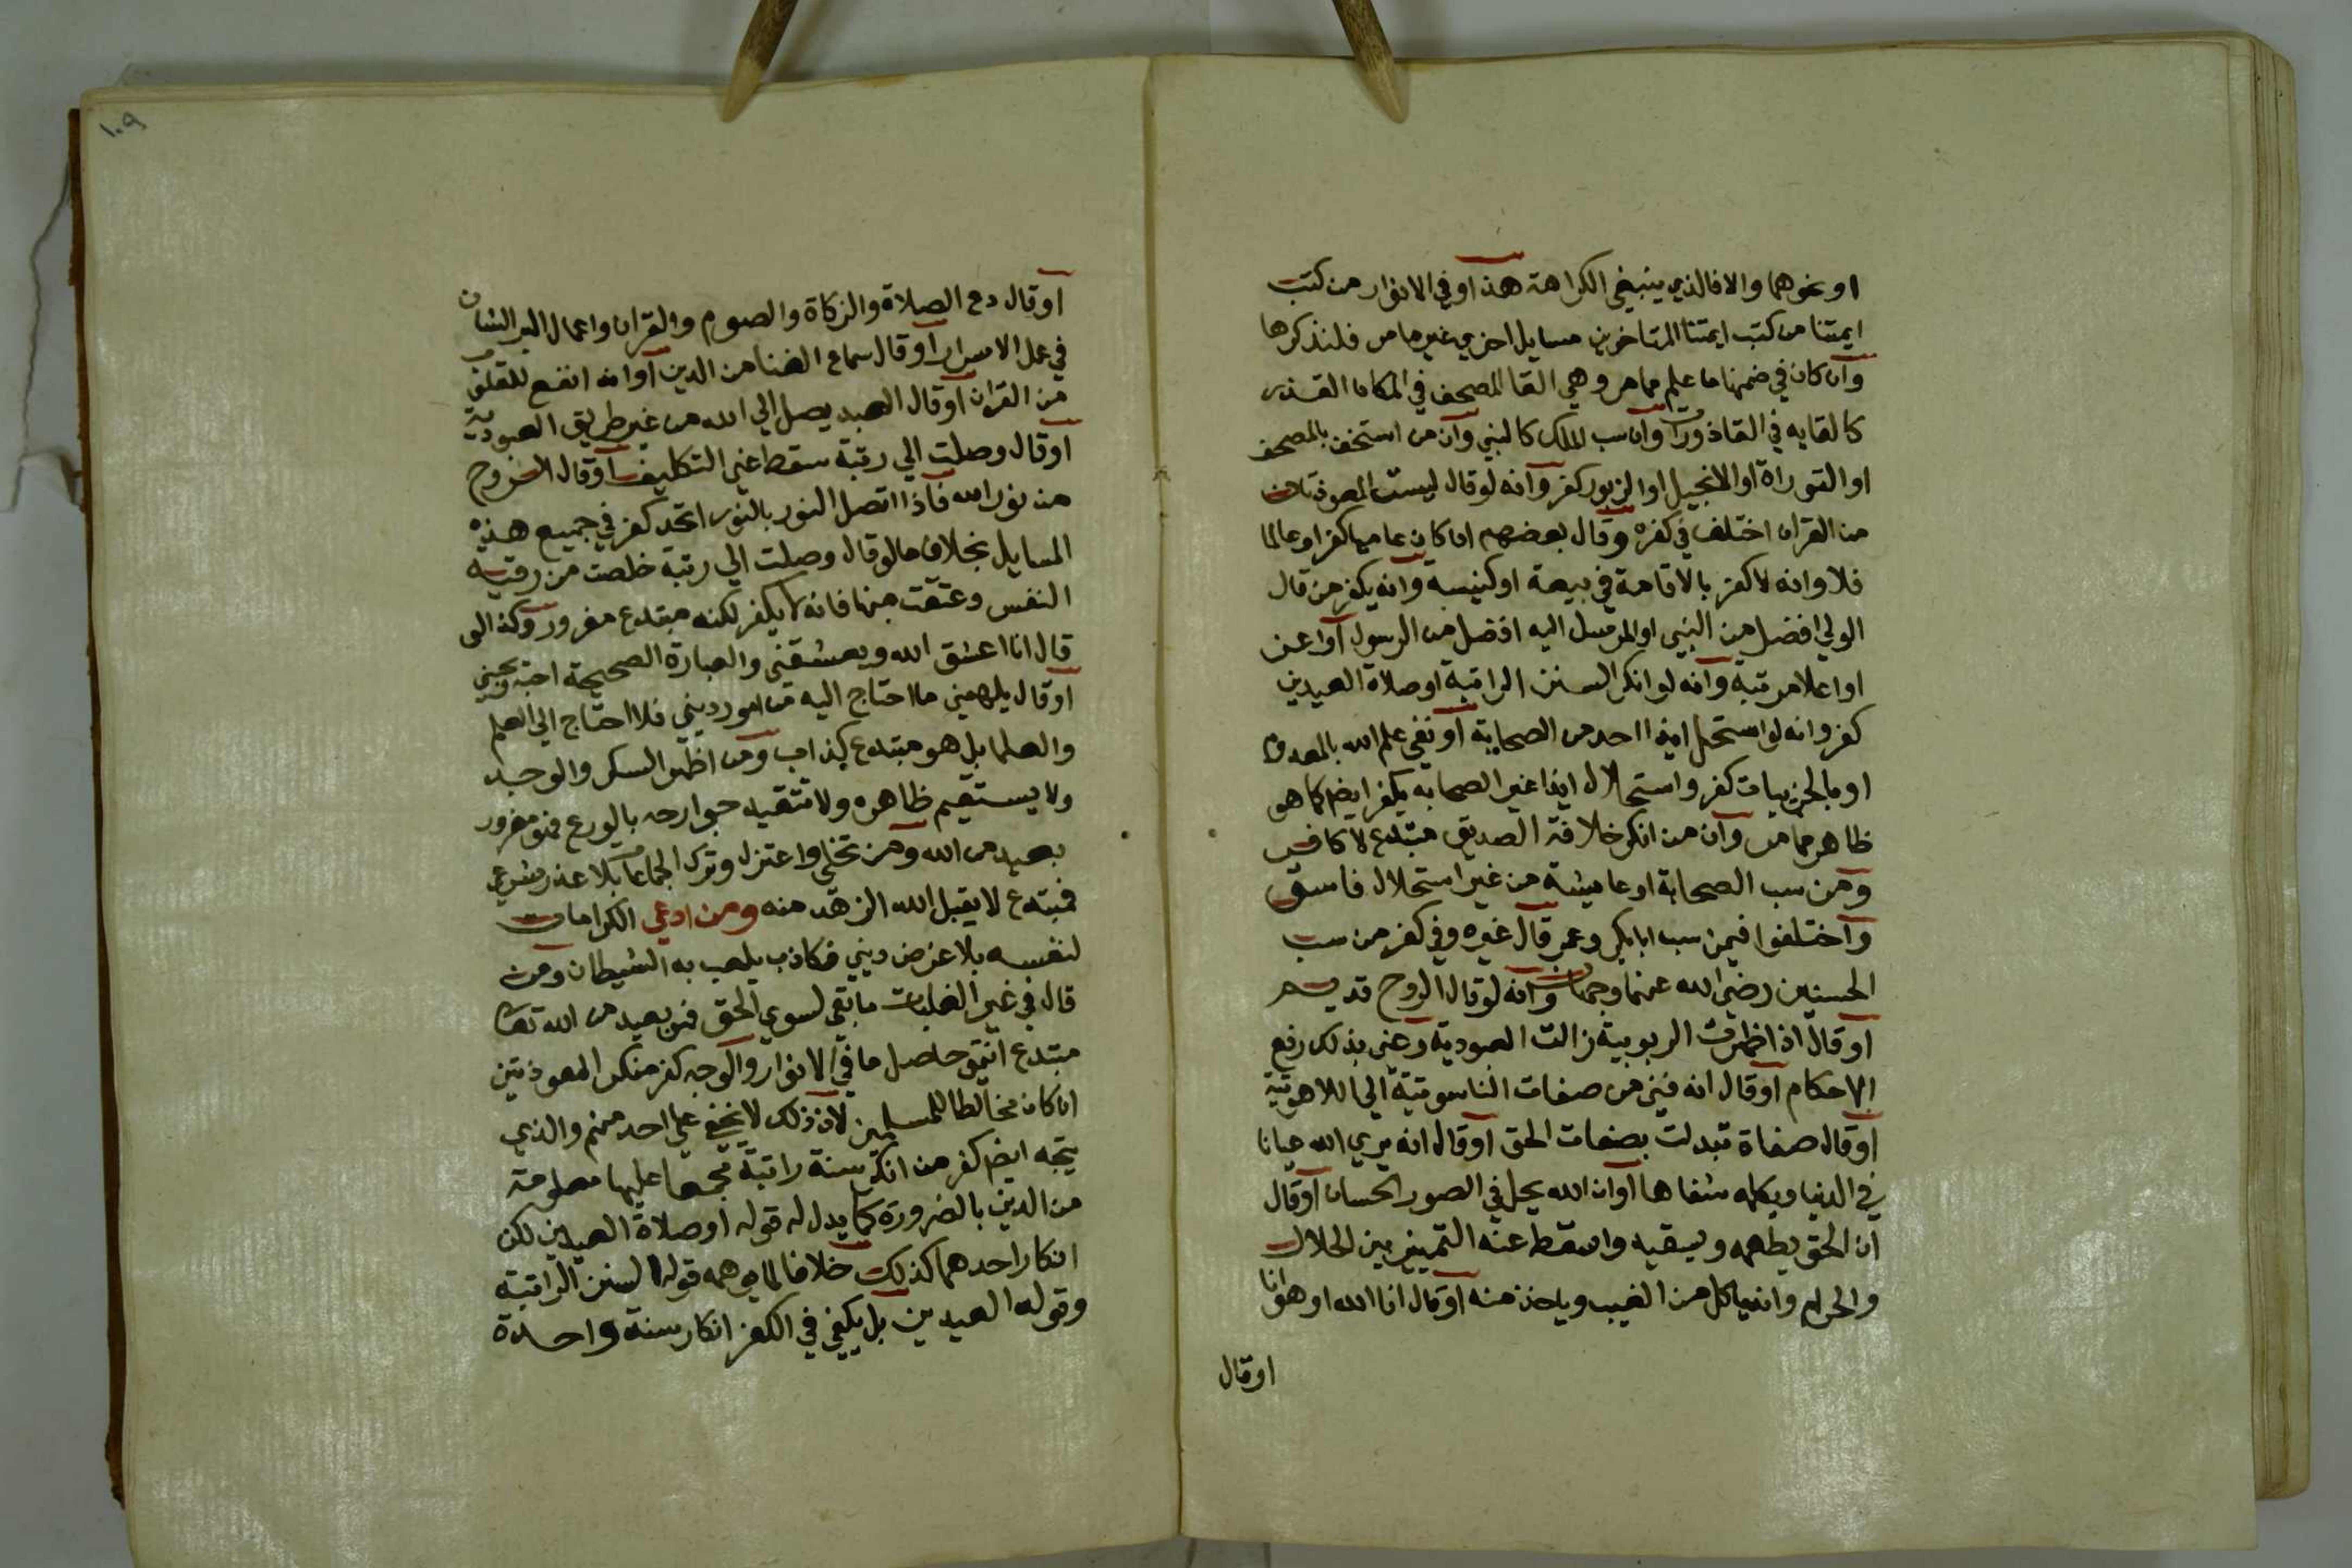 او نحوهما والا فالذي ينبغي الكراهة هذا وفي الانوار من كتب
ايمتنا من كتب ايمتنا المتاخرين مسايل اخري غير ما مر فلنذكرها
وان كان في ضمنها ما علم مما مر وهي القا المصحف في المكان القذر
كالقايه في القاذورات وان سب الملك كالنبي وان من استخف بالمصحف
او التوراة او الانجيل او الزبور كفر وانه لو قال ليست المعوذتان
من القران اختلف في كفره وقال بعضهم ان كان عاميا كفر او عالما
فلا وانه لا كفر بالاقامة في بيعة او كنيسة وانه يكفر من قال
الولي افضل من النبي او المرسل اليه افضل من الرسول او اعز
او اعلا مرتبة وانه لو انكر السنن الراتبة او صلاة العيدين
كفر وانه لو استحل ايذا احد من الصحابة او نفي علم الله بالمعدوم
او بالجزييات كفر واستحلال ايذا غير الصحابه يكفر ايضا كما هو
ظاهر مما مر وان من انكر خلافة الصديق مبتدع لا كافر
ومن سب الصحابة او عايشة من غير استحلال فاسق
واختلفوا فيمن سب ابابكر وعمر قال غيره وفي كفر من سب
الحسنين رضي الله عنهما وجهان وانه لو قال الروح قديم
او قال اذا ظهرت الربوبية زالت العبودية وعني بذلك رفع
الاحكام او قال انه فني من صفات الناسوتية الي اللاهوتية
او قال صفاة تبدلت بصفات الحق او قال انه يري الله عيانا
في الدنيا ويكلمه شفاها او ان الله يحل في الصور الحسان او قال
ان الحق يطعمه ويسقيه واسقط عنه التمييز بين الحلال
والحرام وانه ياكل من الغيب وياخذ منه او قال انا الله او هو انا
او قال
١٠٩
او قال دع الصلاة والزكاة والصوم والقران واعمال البر الشان
في عمل الاسرار او قال سماع الغنا من الدين او انه انفع للقلوب
من القران او قال العبد يصل الي الله من غير طريق العبودية
او قال وصلت الي رتبة سقط عني التكليف او قال الروح
من نور الله فاذا اتصل النور بالنور اتحد كفر في جميع هذه
المسايل بخلاف ما لو قال وصلت الي رتبة خلصت من رقية
النفس وعتقت منها فانه لا يكفر لكنه مبتدع مغرور وكذا لو
قال انا اعشق الله ويعشقني والعبارة الصحيحة احبه ويحبني
او قال يلهمني ما احتاج اليه من امور ديني فلا احتاج الي العلم
والعلما بل هو مبتدع كذاب ومن اظهر السكر والوجد
ولا يستقيم ظاهره ولا تتقيد جوارحه بالورع فهو مغرور
بعيد من الله ومن تخلي واعتزل وترك الجماعات بلا عذر شرعي
فمبتدع لا يقبل الله الزهد منه ومن ادعي الكرامات
لنفسه بلا غرض ديني فكاذب يلعب به الشيطان ومن
قال في غير الغلبات ما بقي لسوي الحق فهو بعيد من الله تعالى
مبتدع انتهى حاصل ما في الانوار والوجه كفر منكر المعوذتين
ان كان مخالطا للمسلمين لان ذلك لا يخفي علي احد منهم والذي
يتجه ايضا كفر من انكر سنة راتبة مجمعا عليها معلومة
من الدين بالضرورة كما يدل له قوله او صلاة العيدين لكن
انكار احدهما كذلك خلافا لما يوهمه قوله السنن الراتبة
وقوله العيدين بل يكفي في الكفر انكار سنة واحدة